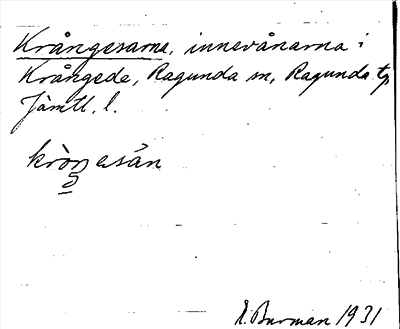 Krångesarna, innevånarna i
Krångede, Ragunda sn, Ragunda tg
Jämtl. l.
kròŋesån
E. Burman 1931